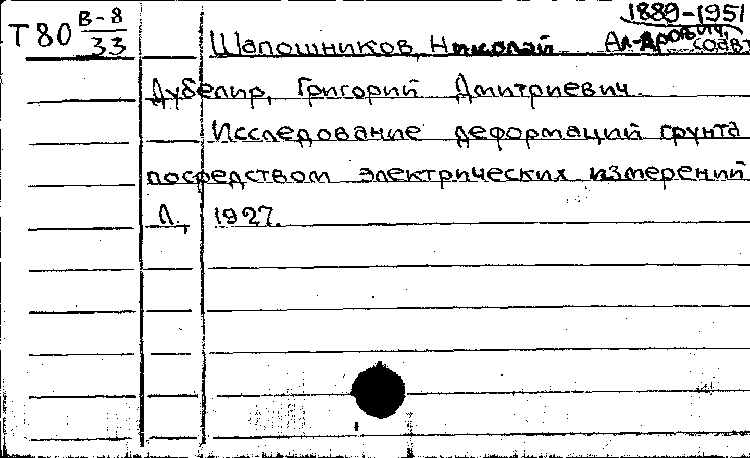 1889-1951
Т80 В-8/33 Шапошников, Николай Ал-дрович, соавт
Дубелир, Григорий Дмитриевич
Исследование деформаций грунта
посредством электрических измерений
Л., 1927.